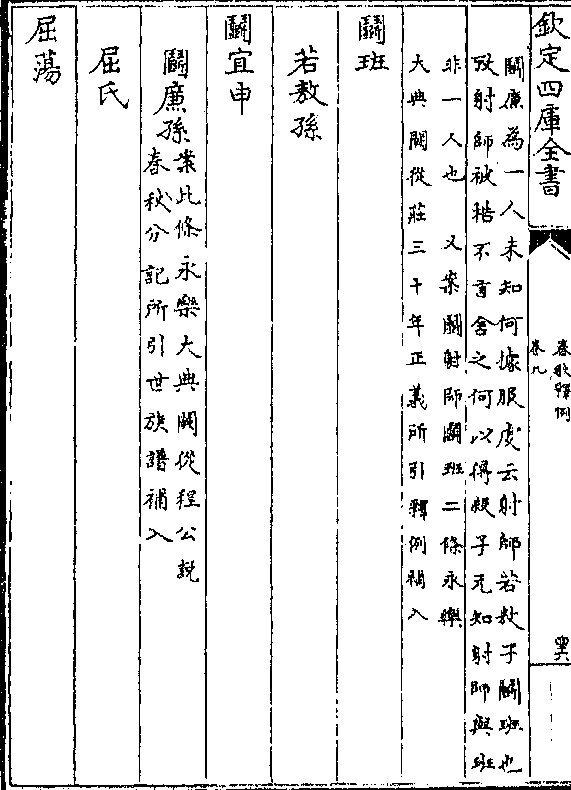 欽定四庫全書
春秋釋例
卷九
鬭廉為一人未知何據服虔云射師若敖子鬭班也
攷射師被梏不言舍之何以得殺子元知射師與班
非一人也 又案鬭射師鬭班二條永樂
大典闕從莊三十年正義所引釋例補入
鬭班
若敖孫
鬭宜申
鬭廉孫案此條永樂大典闕從程公説
春秋分記所引世族譜補入
屈氏
屈蕩